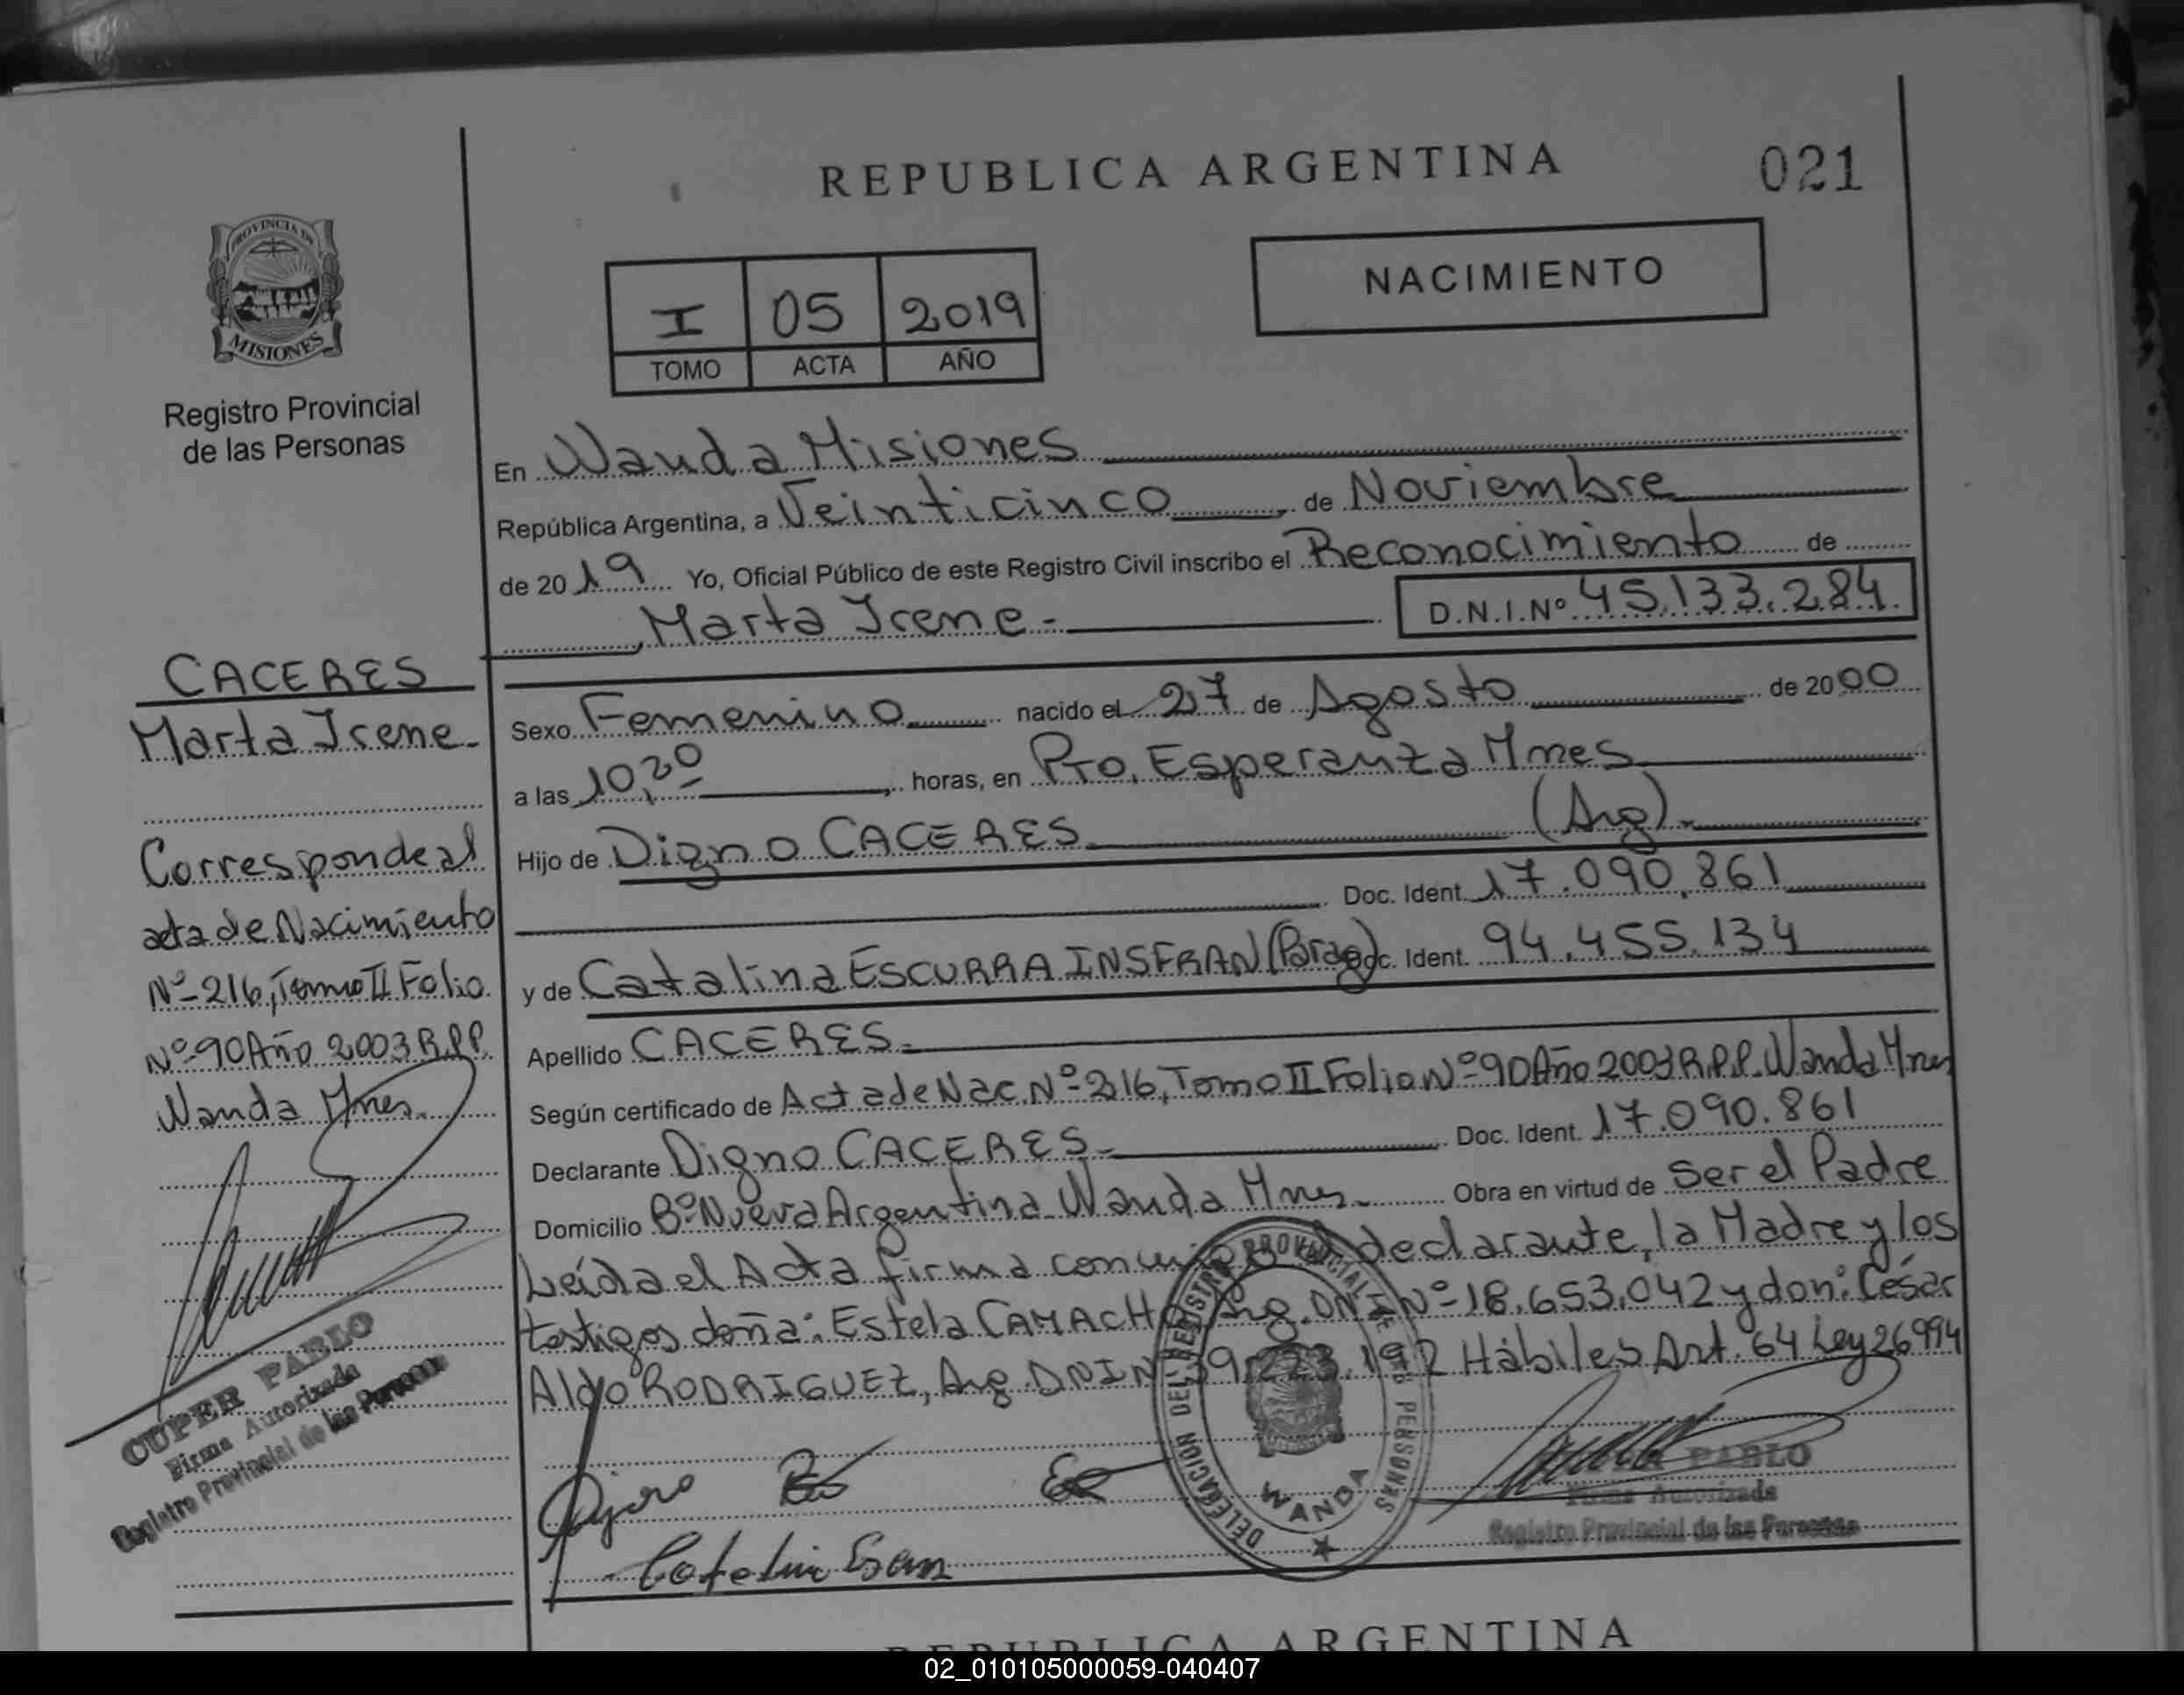 REPUBLICA ARGENTINA
021
PROVINCIA DE
MISIONES
Registro Provincial
de las Personas
I 05 2019
TOMO ACTA AÑO
NACIMIENTO
En Wanda Misiones
República Argentina, a Veinticinco de Noviembre
de 2019 Yo, Oficial Público de este Registro Civil inscribo el Reconocimiento de
Marta Irene.- D.N.I.Nº 45.133.284
CACERES
Marta Irene.
Corresponde al
acta de Nacimiento
Nº 216, Tomo II Folio
Nº 90 Año 2003 R.P.P.
Wanda Mnes.
Sexo Femenino nacido el 27 de Agosto de 2000
a las 10,20 horas, en Pto. Esperanza Mnes
Hijo de Digno CACERES (Arg).
Doc. Ident. 17.090.861
y de Catalina ESCURRA INSFRAN (Parag) Doc. Ident. 94.455.134
Apellido CACERES.
Según certificado de Acta de Nac. Nº 216, Tomo II Folio Nº 90 Año 2003 R.P.P. Wanda Mnes
Declarante Digno CACERES.- Doc. Ident. 17.090.861
Domicilio Bº Nueva Argentina Wanda Mnes. Obra en virtud de Ser el Padre
Leída el Acta firma conmigo el declarante, la Madre y los
testigos doña: Estela CAMACHO, Arg. DNI Nº 18.653.042 y don: César
Aldo RODRIGUEZ, Arg. DNI Nº 39.223.192 Hábiles Art. 64 Ley 26994
CUPER PABLO
Firma Autorizada
Registro Provincial de las Personas
DELEGACION DEL REGISTRO PROVINCIAL DE LAS PERSONAS
WANDA
PABLO
Firma Autorizada
Registro Provincial de las Personas
REPUBLICA ARGENTINA
02_010105000059-040407